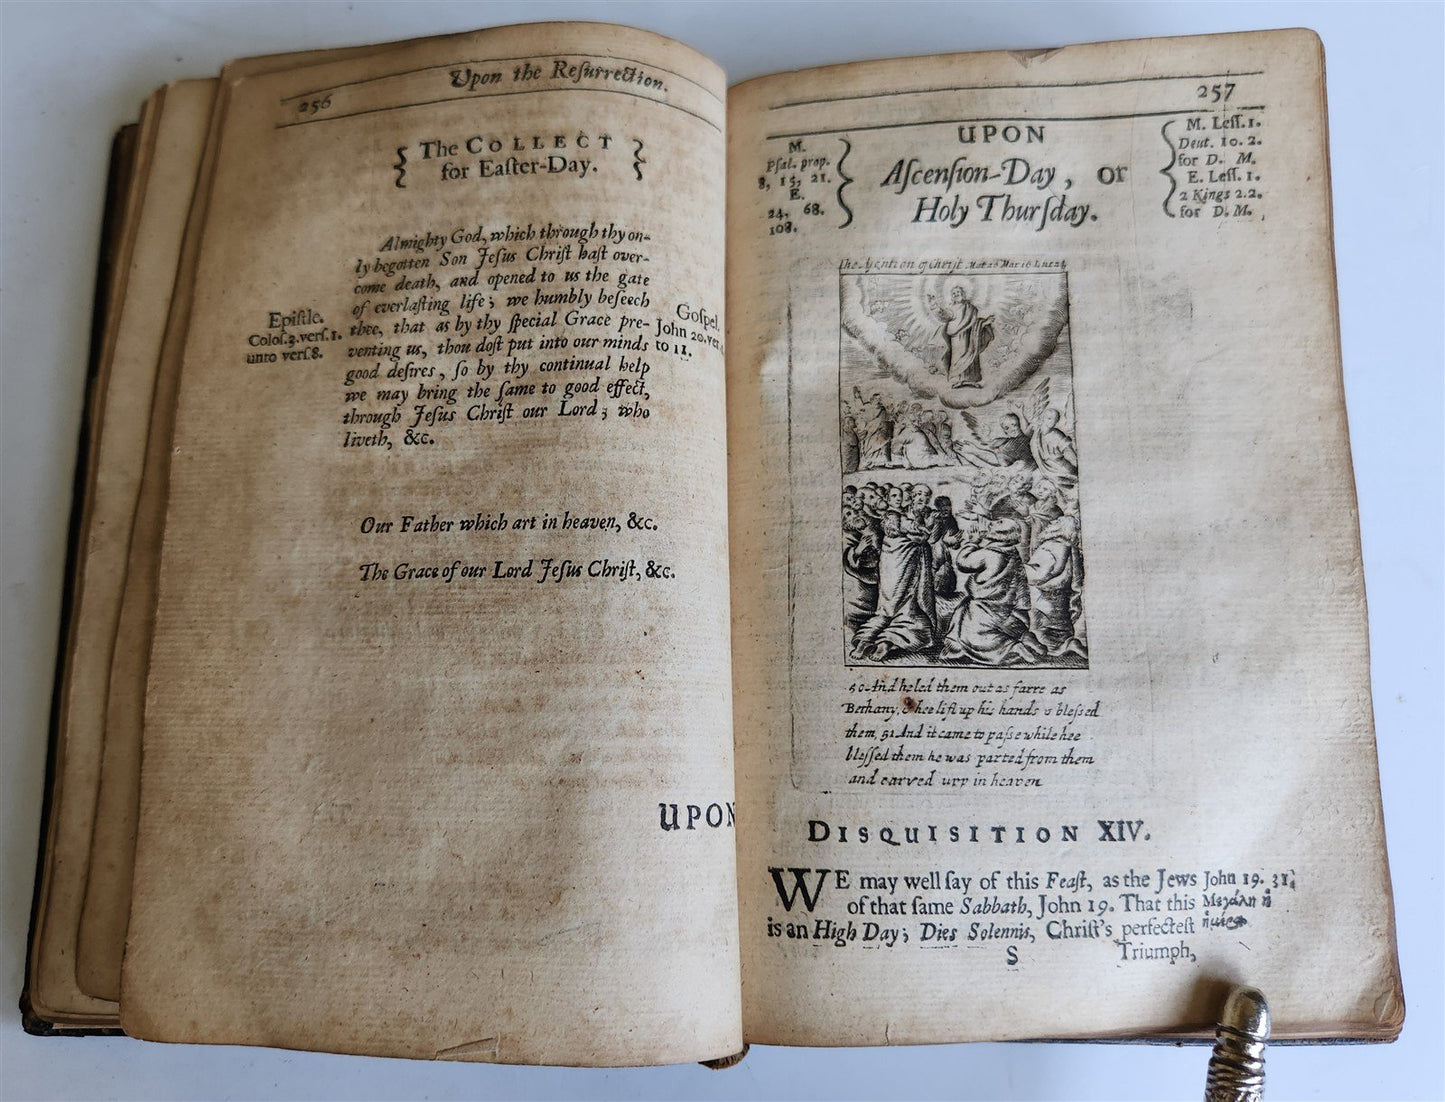 256
Upon the Reſurrection.
The COLLECT
for Eaſter-Day.
Almighty God, which through thy on-
ly begotten Son Jeſus Chriſt haſt over-
come death, and opened to us the gate
of everlaſting life; we humbly beſeech
thee, that as by thy ſpecial Grace pre-
venting us, thou doſt put into our minds
good deſires, ſo by thy continual help
we may bring the ſame to good effect,
through Jeſus Chriſt our Lord; who
liveth, &c.
Epiſtle.
Coloſ.3.verſ.1.
unto verſ.8.
Goſpel.
John 20. ver.
to 11.
Our Father which art in heaven, &c.
The Grace of our Lord Jeſus Chriſt, &c.
UPON
257
M.
Pſal. prop.
8, 15, 21.
E.
24, 68.
108.
UPON
Aſcenſion-Day, or
Holy Thurſday.
M. Leſſ. 1.
Deut. 10. 2.
for D. M.
E. Leſſ. 1.
2 Kings 2.2.
for D. M.
The Aſention of Chriſt
50 And he led them out as farre as
Bethany, & hee lift up his hands & bleſsed
them, 51 And it came to paſse while hee
bleſſed them he was parted from them
and carved upp in heaven
DISQUISITION XIV.
WE may well ſay of this Feaſt, as the Jews
of that ſame Sabbath, John 19. That this
is an High Day; Dies Solennis, Chriſt's perfecteſt
John 19. 31.
Μεγάλη ἡ
S
Triumph,